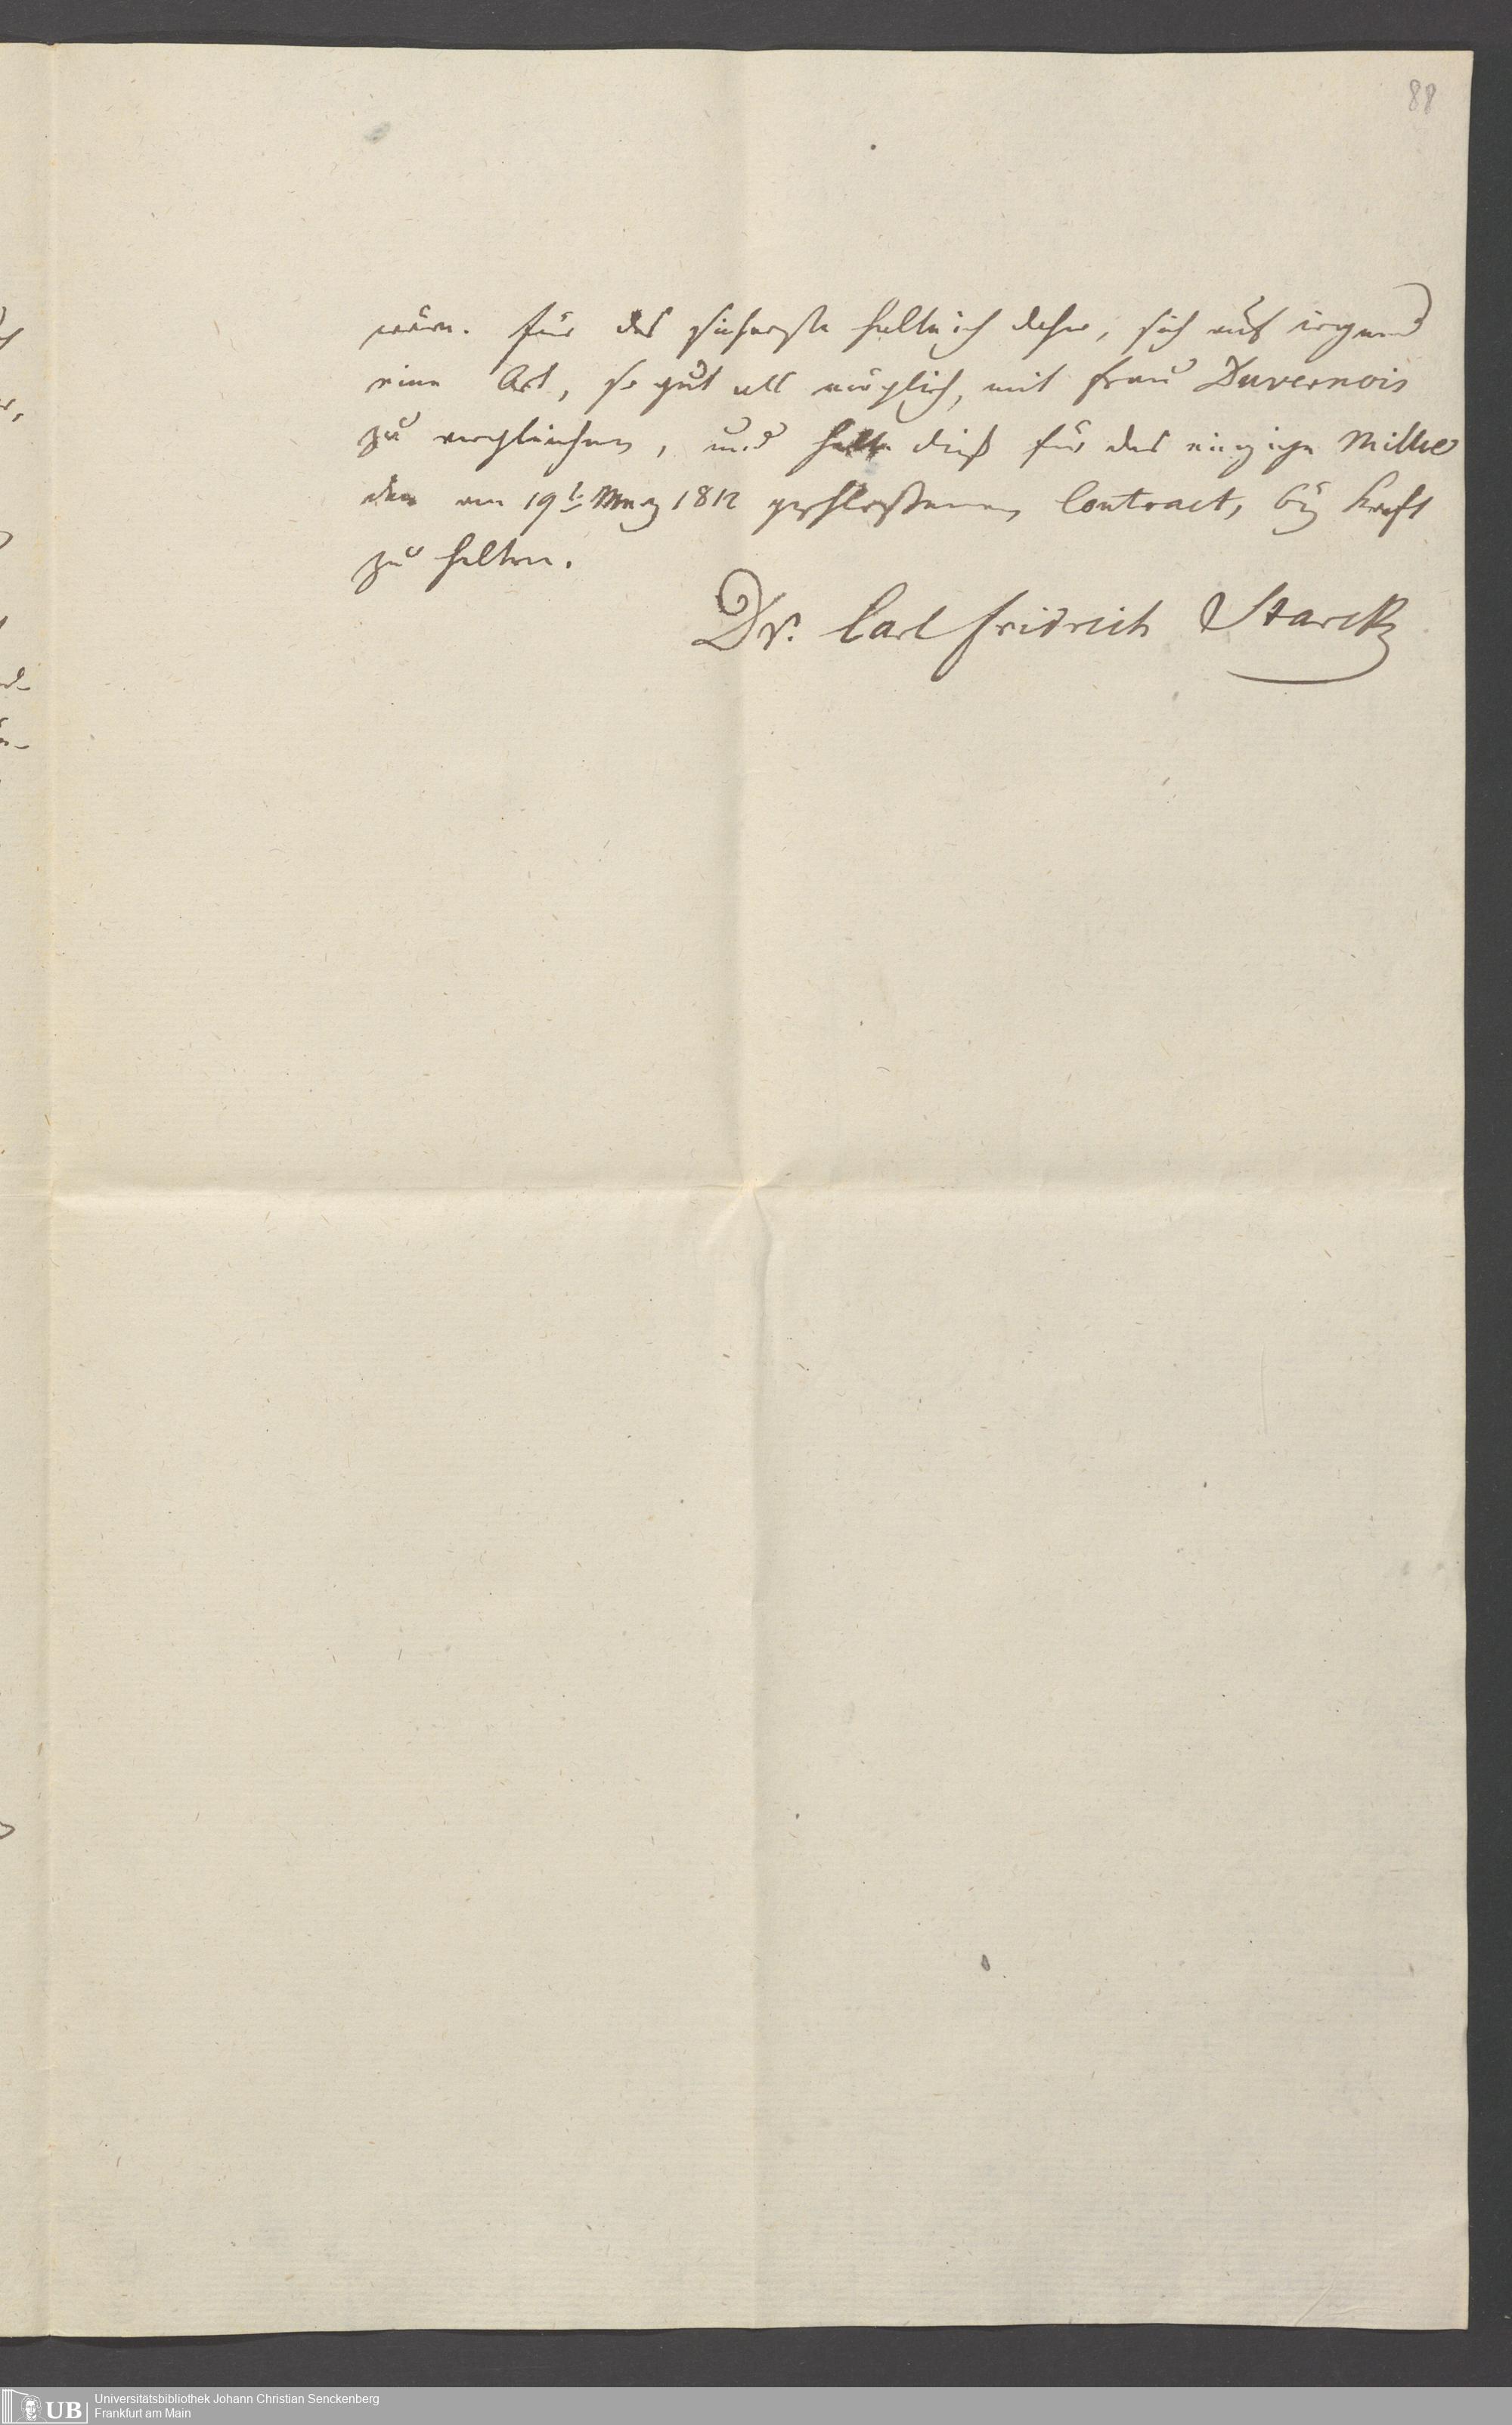 88
wäre. Für das sicherste halte ich daher, sich auf irgend
eine Art, so gut als möglich, mit Frau Duvernois
zu vergleichen, und halte dieß für das einzige Mittel
den am 19t May 1812 geschlossenen Contract, bey Kraft
zu halten.
Dr. Carl Fridrich Starck
UB
Universitätsbibliothek Johann Christian Senckenberg
Frankfurt am Main